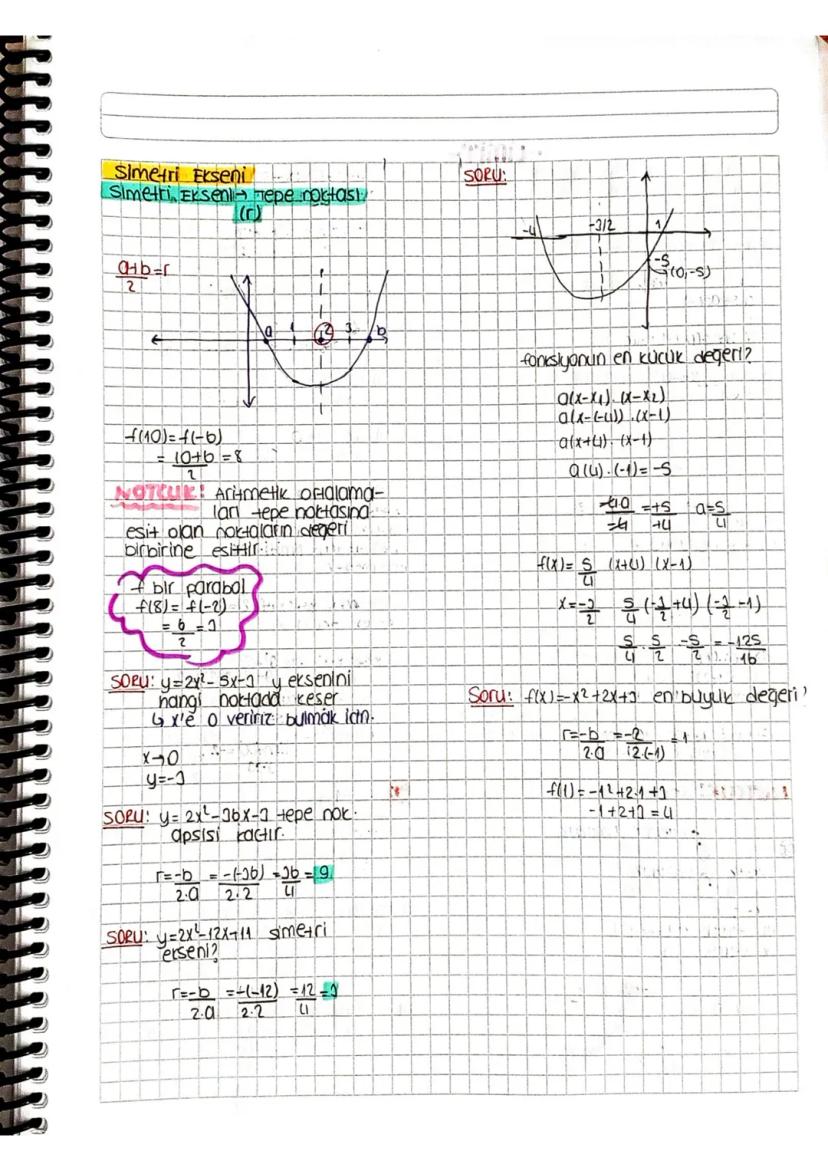 Simetri Ekseni
Simetri Ekseni → Tepe noktası
(r)
a+b/2 = r
a 1 2 3 b
f(10) = f(-6)
= 10+6/2 = 8
NOTCUK: Aritmetik ortalama-
ları tepe noktasına
eşit olan noktaların değeri
birbirine eşittir.
f bir parabol
f(8) = f(-2)
= 6/2 = 3
SORU: y=2x²-5x-3 y eksenini
hangi noktada keser
↳ x'e 0 veririz bulmak için.
x→0
y=-3
SORU: y=2x²-36x-3 tepe nok.
apsisi kaçtır.
r=-b/2.a = -(-36)/2.2 = 36/4 = 9
SORU: y=2x²-12x+11 simetri
ekseni?
r=-b/2.a = -(-12)/2.2 = 12/4 = 3
SORU:
-4 -3/2 1
-5
(0,-5)
fonksiyonun en küçük değeri?
a(x-x₁).(x-x₂)
a(x-(-4)).(x-1)
a(x+4).(x-1)
a(4).(-1)=-5
-4a/-4 = +5/+4 a=5/4
f(x)= 5/4 (x+4) (x-1)
x=-3/2 5/4 (-3/2 +4) (-3/2 -1)
5/4 . 5/2 . -5/2 = -125/16
Soru: f(x)=-x²+2x+3 en büyük değeri?
r=-b/2.a = -2/2.(-1) = 1
f(1)=-1²+2.1+3
-1+2+3=4